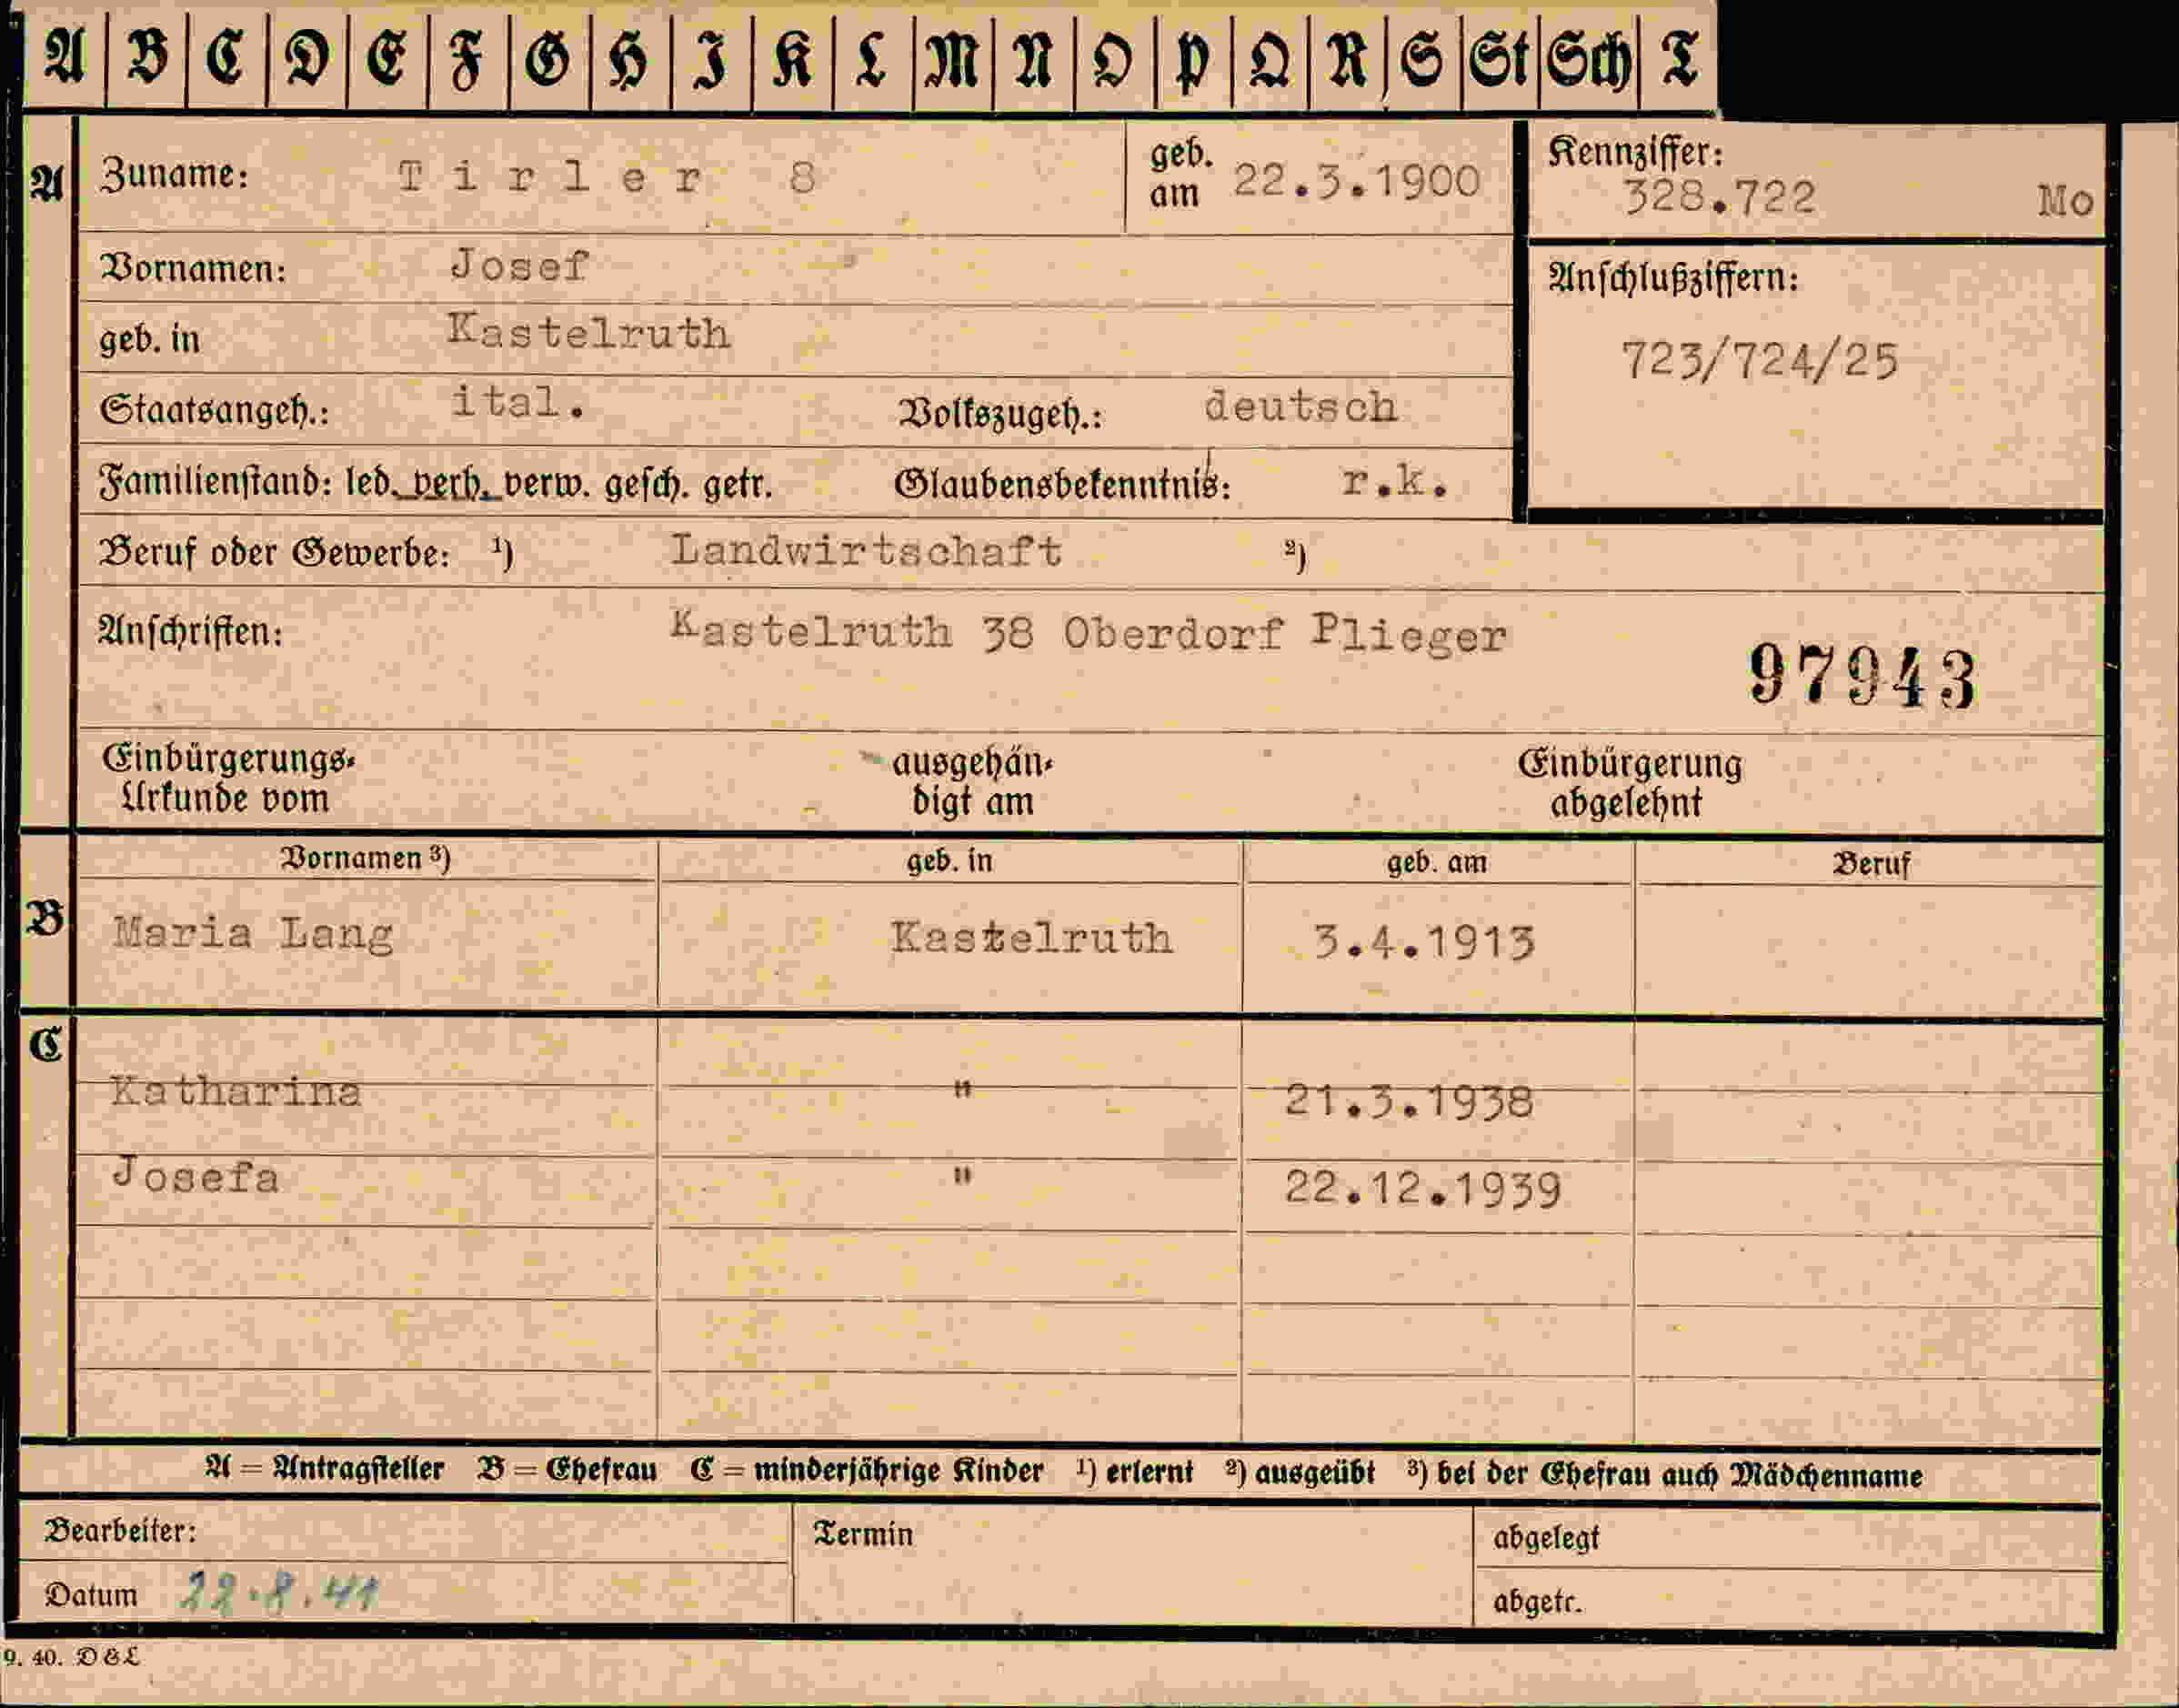 A B C D E F G H I K L M N O P Q R S St Sch T
A Zuname: Tirler 8 geb. am 22.3.1900 Kennziffer: 328.722 Mo
Vornamen: Josef
Anschlußziffern:
geb. in Kastelruth
723/724/25
Staatsangeh.: ital. Volkszugeh.: deutsch
Familienstand: led. verh. verw. gesch. getr. Glaubensbekenntnis: r.k.
Beruf oder Gewerbe: ¹) Landwirtschaft ²)
Anschriften: Kastelruth 38 Oberdorf Plieger
97943
Einbürgerungs-Urkunde vom ausgehändigt am Einbürgerung abgelehnt
Vornamen ³) geb. in geb. am Beruf
B Maria Lang Kastelruth 3.4.1913
C
Katharina " 21.3.1938
Josefa " 22.12.1939
A = Antragsteller B = Ehefrau C = minderjährige Kinder ¹) erlernt ²) ausgeübt ³) bei der Ehefrau auch Mädchenname
Bearbeiter: Termin abgelegt
Datum 22.8.41 abgetr.
9. 40. D&L